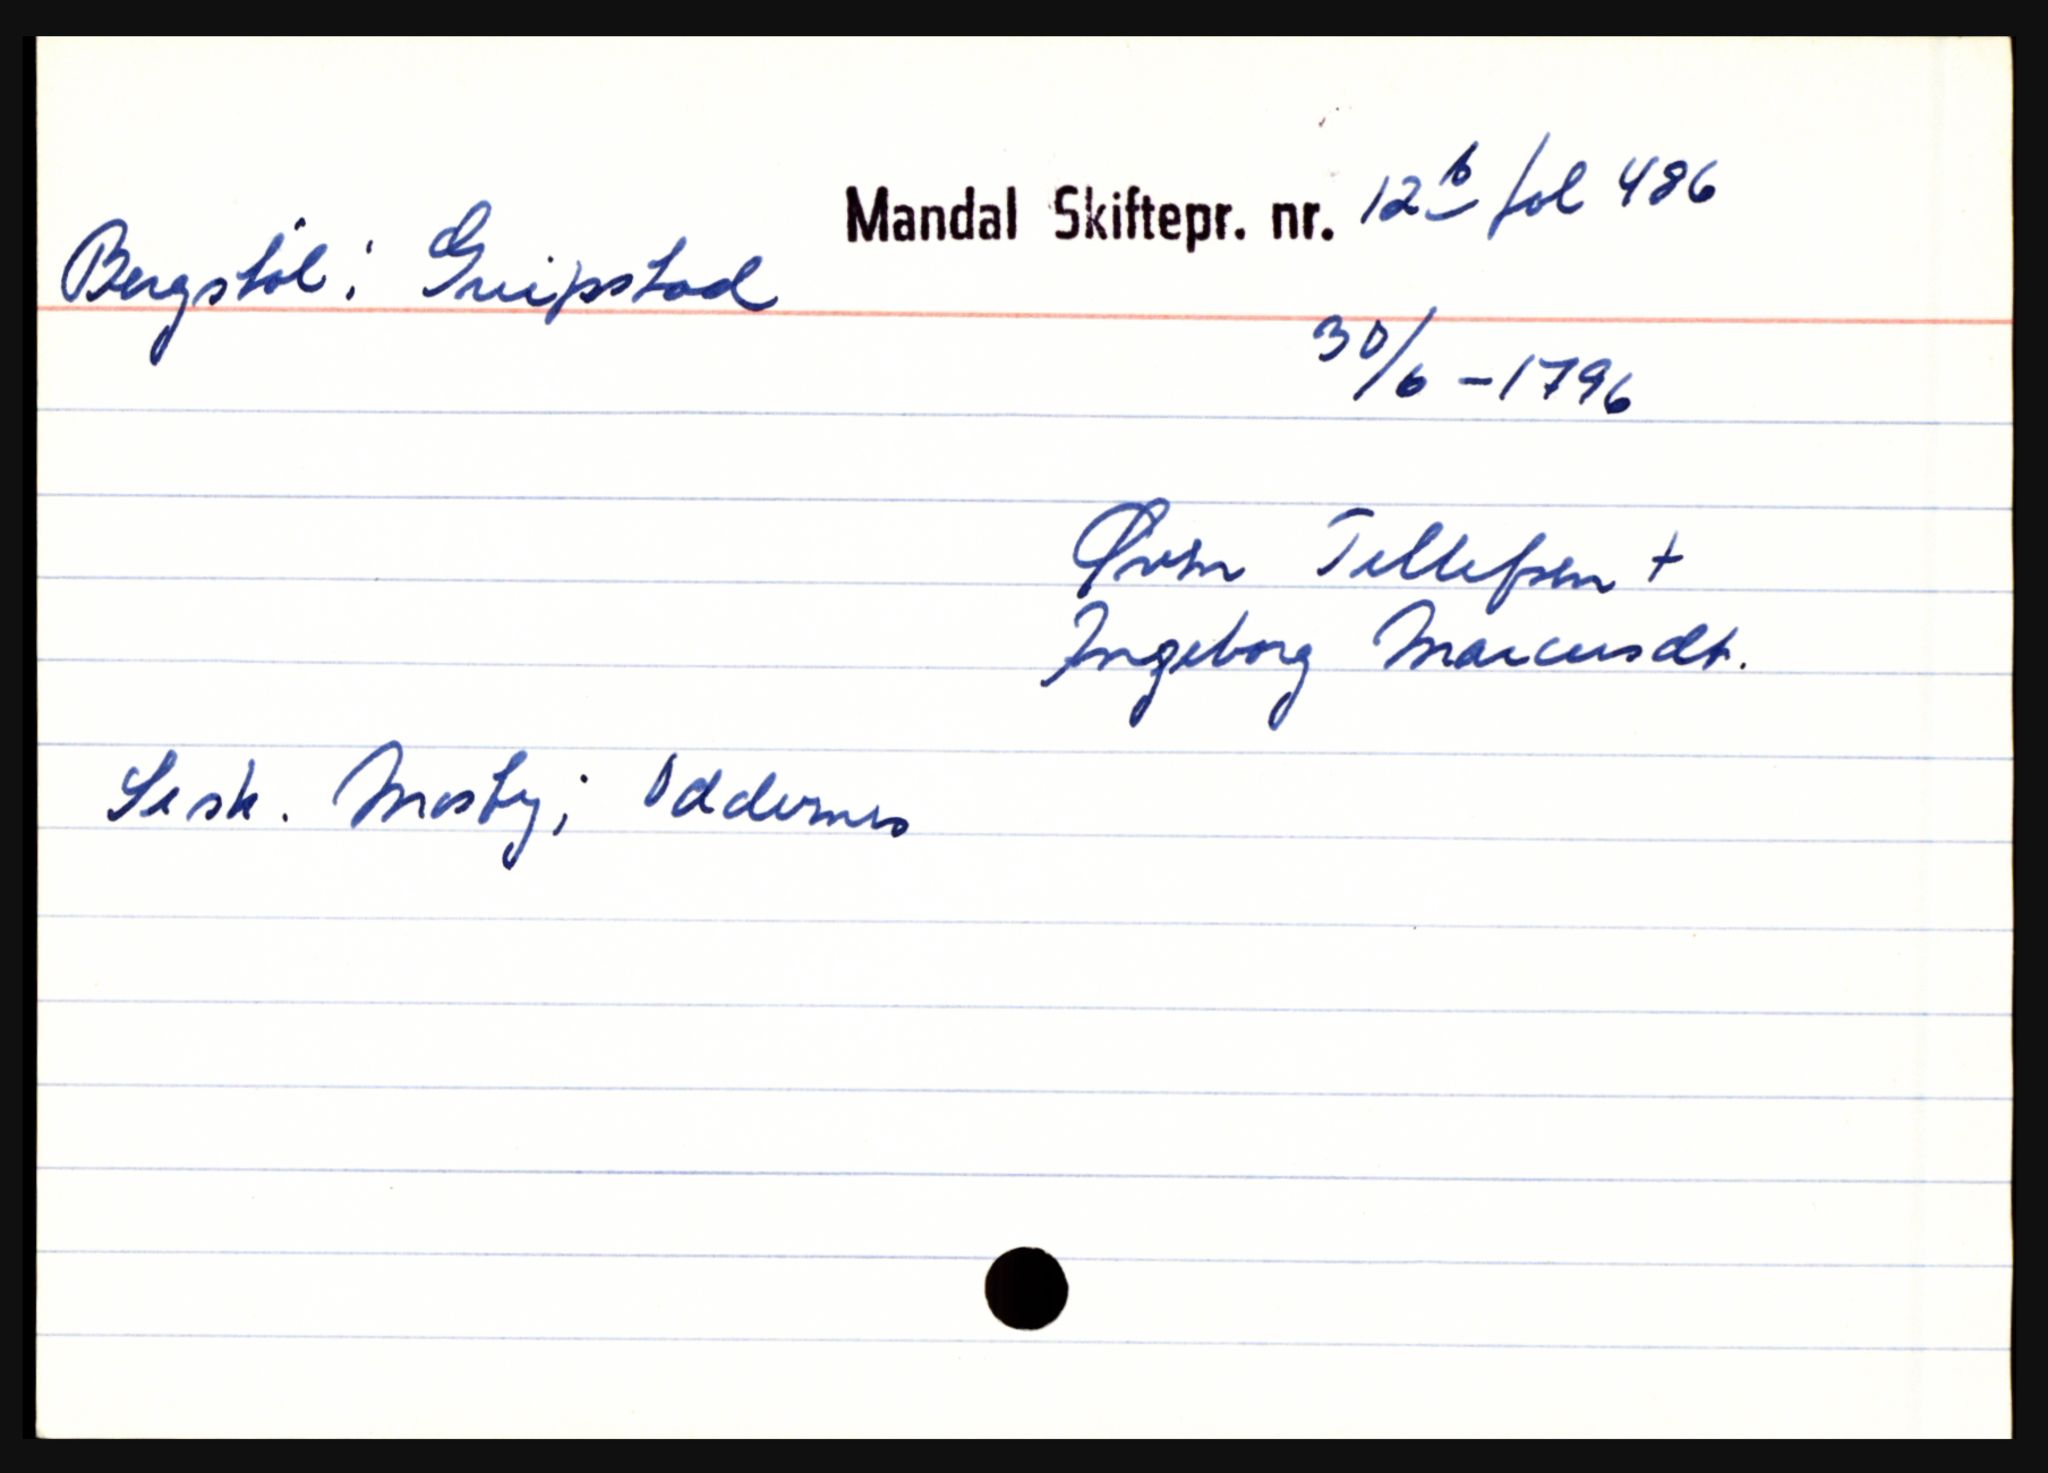 Mandal Skiftepr. nr. 12 b fol 486
Bergstøl i Greipstad
30/6 - 1796
Øven Tellefsen +
Ingeborg Marcusdt.
Se sk. Mosby i Oddernes